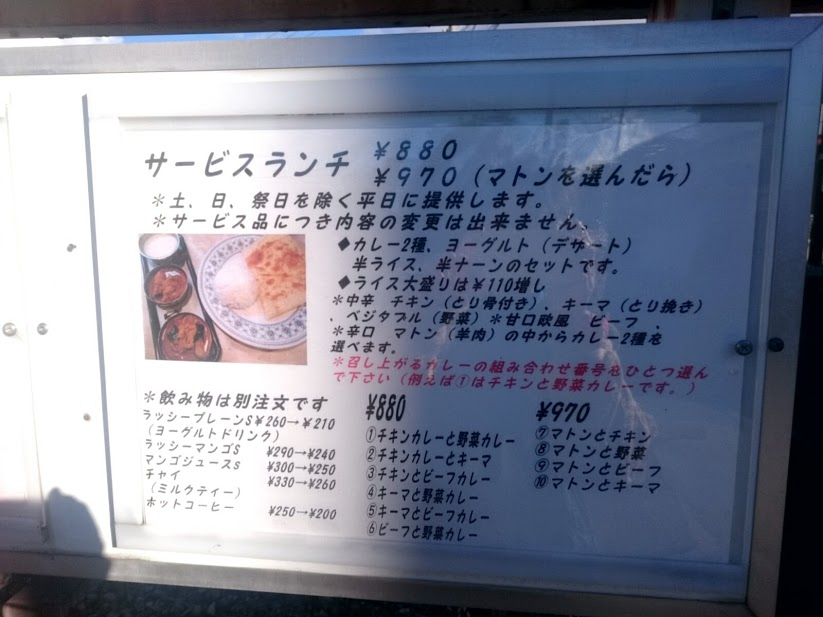 サービスランチ ￥880
￥970（マトンを選んだら）
＊土、日、祭日を除く平日に提供します。
＊サービス品につき内容の変更は出来ません。
◆カレー2種、ヨーグルト（デザート）
半ライス、半ナーンのセットです。
◆ライス大盛りは￥110増し
＊中辛 チキン（とり骨付き）、キーマ（とり挽き）
、ベジタブル（野菜）＊甘口欧風 ビーフ 、
＊辛口 マトン（羊肉）の中からカレー2種を
選べます。
＊召し上がるカレーの組み合わせ番号をひとつ選ん
で下さい（例えば①はチキンと野菜カレーです。）
＊飲み物は別注文です
ラッシープレーンS￥260→￥210
（ヨーグルトドリンク）
ラッシーマンゴS ￥290→￥240
マンゴジュースs ￥300→￥250
チャイ ￥330→￥260
（ミルクティー）
ホットコーヒー ￥250→￥200
￥880
①チキンカレーと野菜カレー
②チキンカレーとキーマ
③チキンとビーフカレー
④キーマと野菜カレー
⑤キーマとビーフカレー
⑥ビーフと野菜カレー
￥970
⑦マトンとチキン
⑧マトンと野菜
⑨マトンとビーフ
⑩マトンとキーマ